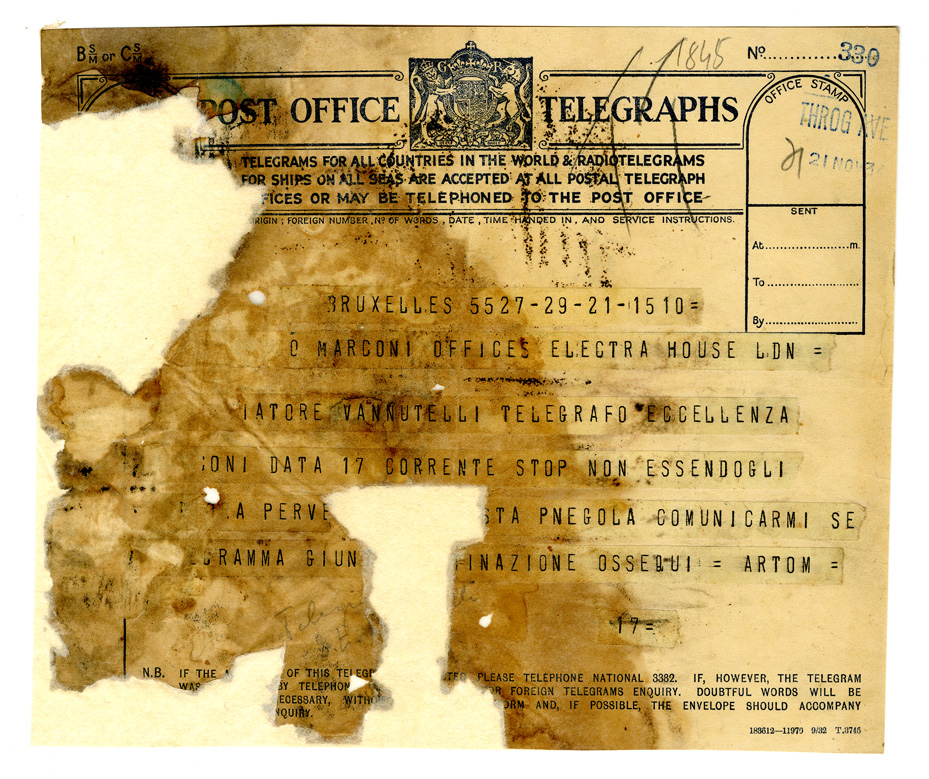 B S/M or C S/M
1845
No 330
POST OFFICE TELEGRAPHS
G R
OFFICE STAMP
THROG AVE
21 NOV
TELEGRAMS FOR ALL COUNTRIES IN THE WORLD & RADIOTELEGRAMS
FOR SHIPS ON ALL SEAS ARE ACCEPTED AT ALL POSTAL TELEGRAPH
FICES OR MAY BE TELEPHONED TO THE POST OFFICE
RIGIN; FOREIGN NUMBER, No OF WORDS, DATE, TIME HANDED IN, AND SERVICE INSTRUCTIONS.
SENT
At m.
To
By
BRUXELLES 5527-29-21-1510=
O MARCONI OFFICES ELECTRA HOUSE LDN =
IATORE VANNUTELLI TELEGRAFO ECCELLENZA
CONI DATA 17 CORRENTE STOP NON ESSENDOGLI
A PERVE STA PNEGOLA COMUNICARMI SE
GRAMMA GIUN INAZIONE OSSEQUI = ARTOM =
17=
N.B. IF THE OF THIS TELEG TED PLEASE TELEPHONE NATIONAL 3382. IF, HOWEVER, THE TELEGRAM
WAS BY TELEPHON OR FOREIGN TELEGRAMS ENQUIRY. DOUBTFUL WORDS WILL BE
ECESSARY, WITHO ORM AND, IF POSSIBLE, THE ENVELOPE SHOULD ACCOMPANY
NQUIRY.
183612—11970 9/32 T.3746